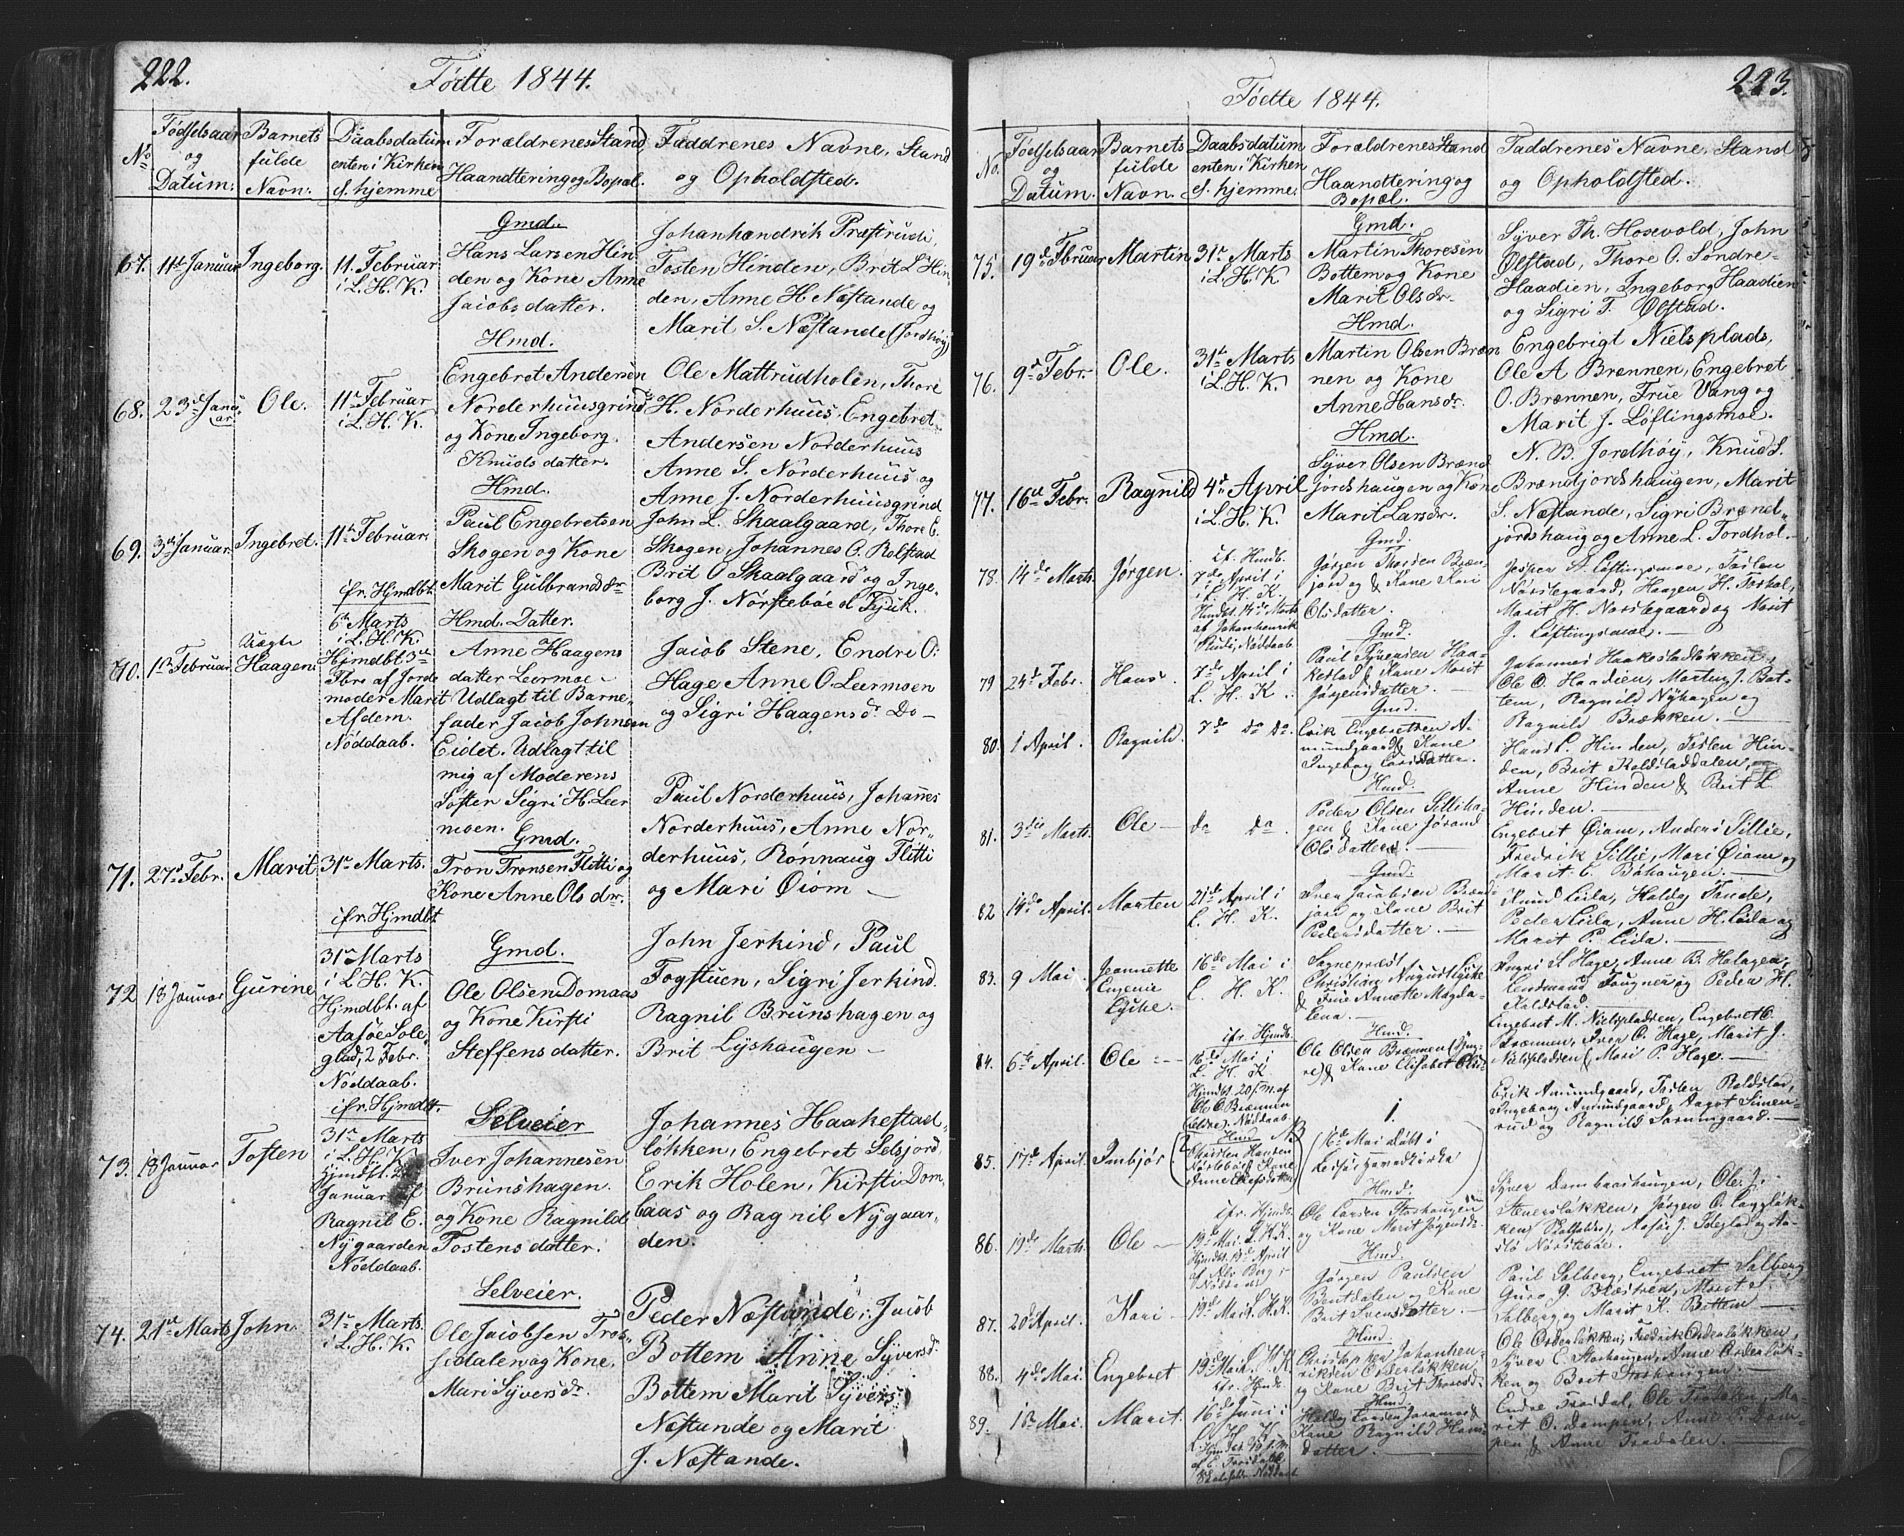 222.
Födte 1844.
No
Födselsaar og Datum.
Barnets fulde Navn.
Daabsdatum enten i Kirken el. hjemme
Forældrenes Stand Haandtering og Bopæl.
Faddrenes Navne, Stand og Opholdsted.
67. 11te Januar Ingeborg. 11. Februar i L. H. K.
Gmd.
Hans Larsen Hin
den og Kone Anne
Jacobsdatter.
Johanhandrik Præstrud,
Tosten Hinden, Brit L Hin
den, Anne H. Næstande og
Marit S. Næstande (Jordhöy)
68. 23de Januar Ole. 11te Februar i L. H. K.
Hmd.
Engebret Andersen
Norderhuusgrind
og Kone Ingeborg
Knudsdatter.
Ole Mattrudholen, Thore
H. Norderhuus, Engebret
Andersen Norderhuus
Anne S. Norderhuus og
Anne J. Norderhuusgrind
69. 3de Januar. Ingebret. 11te Februar.
Hmd.
Paul Engebretsen
Skogen og Kone
Marit Gulbrandsdr
John L. Skaalgaard, Thore E.
Skogen, Johannes O. Rolstad
Brit O Skaalgaard og Inge-
borg J. Nörsteböe
70. 1te Februar. Uægte Haagen
ifr. Hjmdbt.
6te Marts
i L. H. K.
Hjmdbt 3de
Fbr. af Jorde
moder Marit
Afdem.
Nöddaab.
Hmd. Datter.
Anne Haagens
datter Leermoe
Udlagt til Barne-
fader Jacob Johnsen
Eidet. Udlagt til
mig af Moderens
Söster Sigri H. Leer
moen.
Jacob Stene, Endre O.
Hage Anne O. Leermoen
og Sigri Haagensdr Do
71. 27de Febr. Marit 31te Marts.
Gmd.
Tron Tronsen Flitti og
Kone Anne Olsdr.
Paul Norderhuus, Johannes
Norderhuus, Anne Nor-
derhuus, Rönnaug Flitti
og Mari Öiom
72 18 Januar Gurine
ifr. Hjmdbt
31te Marts
i L. H. K.
Hjmdbt. af
Aasöe Sole
glad, 2 Febr.
Nöddaab.
Gmd.
Ole Olsen Domaas
og Kone Kirsti
Steffensdatter.
John Jerkind, Paul
Fogstuen, Sigri Jerkind.
Ragnil Brunshagen og
Brit Lyshaugen
73. 18 Januar Tosten
ifr. Hjmdbt.
31te Marts
i L. H. K.
Januar af
Ragnil E.
Nygaarden
Nöddaab.
Selveier
Iver Johannesen
Brunshagen.
og Kone Ragnild
Tostensdatter.
Johannes Haakestad-
lökken, Engebret Selsjord,
Erik Holen, Kirsti Dom-
baas og Ragnil Nygaar-
den.
74. 21de Marts John. 31te Marts. i L. H. K.
Selveier.
Ole Jacobsen Tros-
sodalen og Kone,
Mari Syversdr.
Peder Næstande, Jacob
Bottem Anne Syversdr
Bottem Marit Syvers
Næstande og Marit
J. Næstande.
223.
Födte 1844.
No.
Födselsaar og Datum.
Barnets fulde Navn.
Daabsdatum enten i Kirken el. hjemme.
Forældrenes Stand Haandtering og Bopæl.
Faddrenes Navne, Stand og Opholdsted.
75. 19de Februar Martin 31te Marts i L. H. K
Gmd.
Martin Thoresen
Bottem og Kone
Marit Olsdr.
Syver Th. Hosevold, John
Ölstad, Thore O. Söndre-
Haadien, Ingeborg Haadien
og Sigri T. Ölstad.
76. 9de Febr. Ole. 31te Marts i L. H. K
Hmd.
Martin Olsen Bræn
nen og Kone
Anne Hansdr.
Engebrigt Nielsplads,
Ole A Brennen, Engebret
O. Brænnen, Frue Vang og
Marit J. Löftingsmoe.
77. 16de Febr. Ragnild 4de April i L. H. K.
Hmd.
Syver Olsen Brænd
jordshaugen og Kone
Marit Larsdr.
N. B. Jordhöy, Knud S.
Brændjordshaugen, Marit
S. Næstande, Sigri Brænd-
jordshaug og Anne L. Tordhol.
78. 14de Marts. Jörgen.
ifr. Hmdb.
7de April i
L. H. K.
af Johanhenrik
Nöddaab.
Gmd.
Jörgen Thorsen Bræn-
jord og Kone Kari
Olsdatter.
Jesper S. Löftingsmoe, Tosten
Norstegaard, Haagen H. Tordhol,
Marit H. Norstegaard og Marit
J. Löftingsmoe.
79 24de Febr. Hans. 7de April i L. H. K.
Gmd.
Paul Syversen Haa-
kestad & Kone Marit
Jörgensdatter.
Johannes Haakestadlökken,
Ole O. Haadien, Morten J. Bot-
tem, Ragnild Nyhagen og
Ragnild Brækken.
80. 1 April. Ragnild. 7de do do.
Gmd.
Erik Engebretsen A-
mundgaard & Kone
Ingeborg Larsdatter.
Hans L. Hinden, Tosten Hin-
den, Brit Koldstaddalen,
Anne Hinden & Brit L.
Hinden.
81. 3die Marts. Ole do do.
Hmd.
Peder Olsen Silliha-
gen & Kone Jörand
Olsdatter.
Engebret Öiom, Anders Sillie,
Fredrik Sillie, Mari Öiom og
Marit E. Böhaugen.
82 14de April. Morten 21de April i L. H. K.
Gmd.
Iver Jacobsen Brænd-
jord og Kone Brit
Pedersdatter.
Knud Leila, Haldo Tande,
Peder Leila, Anne H. Leila og
Marit P. Leila.
83. 9 Mai. Jeannette Eugenie Lyche. 16de Mai i L. H. K.
Sognepræst
Christian August Lyche
& Frue Annette Magda-
lena.
Ingri S. Hage, Anne B. Holagen,
Lensmand Fougner og Peder H.
Koldstad.
84. 6te April. Ole
ifr. Hjmdb.
16de Mai i
L. H. K.
Hjmdbt. 20 f. M. af
Ole O. Brænnen
Nöddaab.
Hmd.
Ole Olsen Brænnen (Yng-
re) & Kone Elisabet Olsdr
Engebret M. Nielspladsen, Engebret O.
Brænnen, Iver O. Hage, Marit J.
Nielspladsen & Mari P. Hage.
85. 17de April. Imbjör
Hmd. NB
Thorsten Hansen
Norsteböe & Kone
1.
16de Mai döbt i
Lesje Hovedkirke
Erik Amundgaard, Tosten Koldstad,
Ingeborg Amundgaard, Aagot Simen-
rud og Ragnild
86. 19de Marts Ole
ifr. Hjmdb.
19de Mai. L. H. K.
Hjmdbt. 13de April
Nöddaab
Hmd.
Ole Larsen Storhaugen
og Kone Marit Jörgensdr.
Syver Dombaashaugen, Ole J.
Stuerslökken, Jörgen O. Lyngslök-
ken, Aasöe J. Soleglad og Aa-
slö Norsteböe.
87. 20de April. Kari 19de Mai. L. H. K.
Hmd.
Jörgen Paulsen
Bentdalen og Kone
Brit Svensdatter.
Paul Solberg, Engebret Solberg
Guro G. Blæstren, Marit S
Solberg og Marit K. Bottem
88. 4de Mai. Engebret 19de Mai. L. H. K
Hmd.
Christopher Johanhen-
riksen Ordenlökken
og Kone Brit Thoresdr
Ole Ordenlökken, Fredrik Ordenlökken,
Syver E. Storhaugen, Anne Ordenlök-
ken og Brit Storhaugen.
89. 1te Mai. Marit.
ifr. Hmdb.
16de Juni i
L. H. K.
Hmd.
Haldo Larsen Joramoe &
Kone Ragnild Hans-
datter.
Endre Trodal, Ole Trodalen, Ma-
rit O. Dompen, Anne P. Dom-
pen & Anne Trodalen.